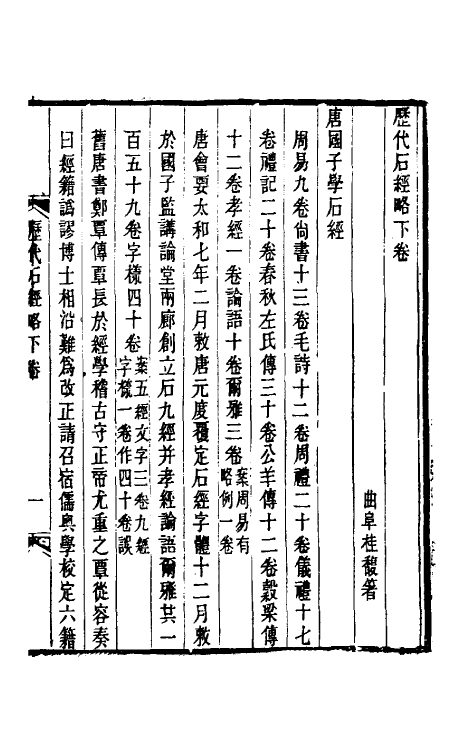 歷代石經略下卷
曲阜桂馥著
唐國子學石經
周易九卷尙書十三卷毛詩十二卷周禮二十卷儀禮十七
卷禮記二十卷春秋左氏傳三十卷公羊傳十二卷穀梁傳
十二卷孝經一卷論語十卷爾雅三卷案周易有略例一卷
唐會要太和七年二月敕唐元度覆定石經字體十二月敕
於國子監講論堂兩廊創立石九經并孝經論語爾雅共一
百五十九卷字樣四十卷案五經文字三卷九經字樣一卷作四十卷誤
舊唐書鄭覃傳覃長於經學稽古守正帝尤重之覃從容奏
曰經籍譌謬博士相沿難爲改正請召宿儒奧學校定六籍
歷代石經略下卷
一